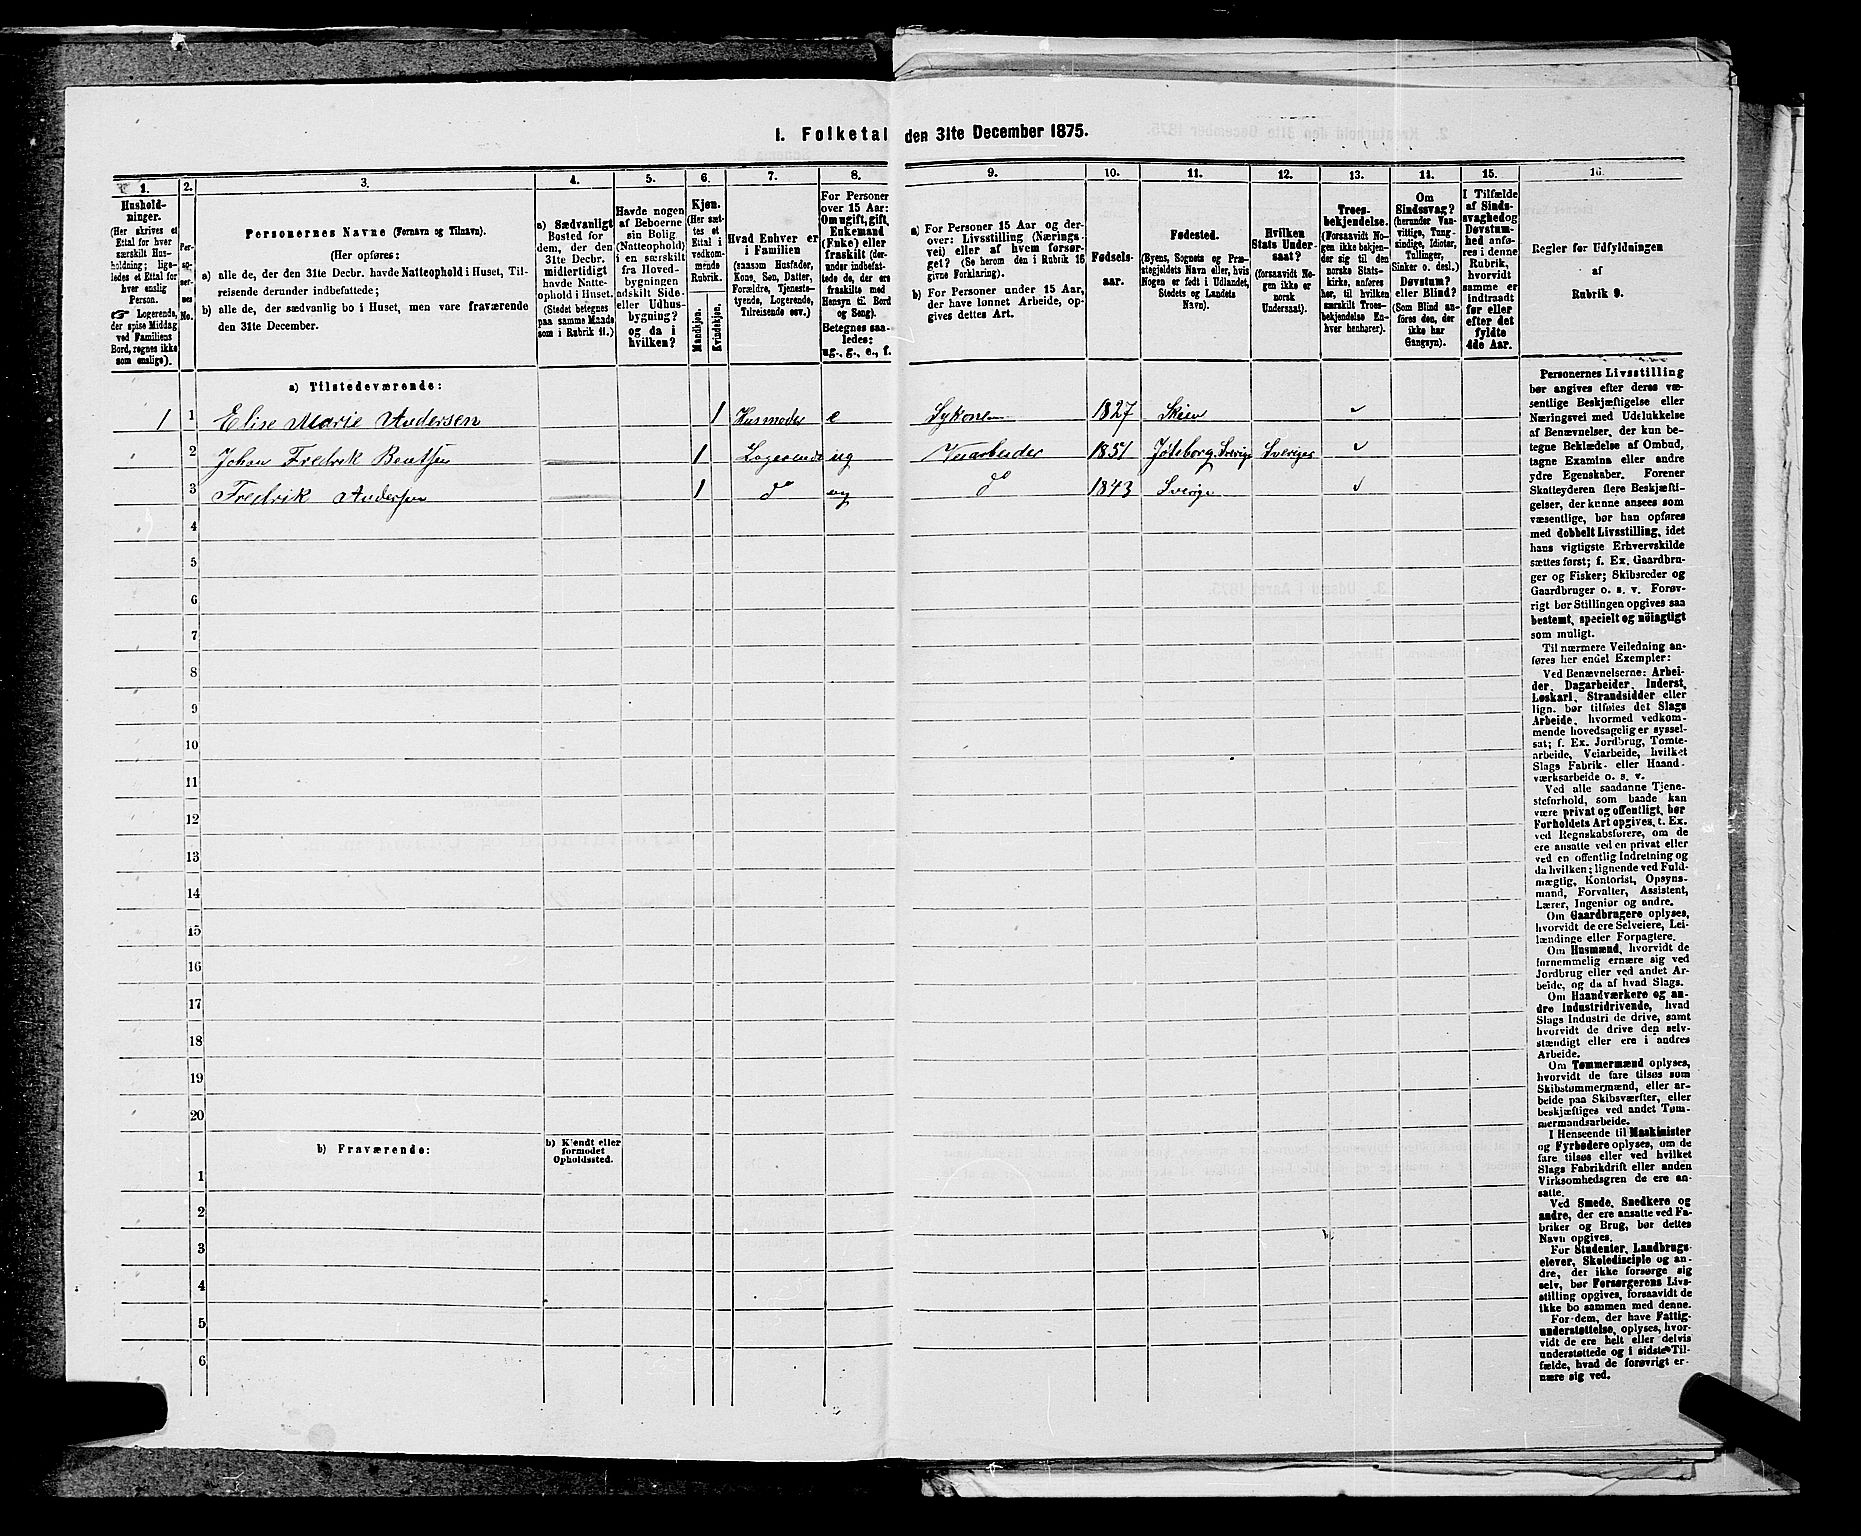 1. Folketal den 31te December 1875.
1. 2. 3. 4. 5. 6. 7. 8. 9. 10. 11. 12. 13. 14. 15. 16.
Hushold-
ninger.
(Her skrives et
Ettal for hver
særskilt Hus-
holdning; lige-
ledes et Ettal for
hver enslig
Person.
☞ Logerende,
der spise Middag
ved Familiens
Bord, regnes ikke
som enslige).
Per-
so-
ner-
nes
No.
Personernes Navne (Fornavn og Tilnavn).
(Her opføres:
a) alle de, der den 31te Decbr. havde Natteophold i Huset, Til-
reisende derunder indbefattede;
b) alle de, der sædvanlig bo i Huset, men vare fraværende
den 31te December.
a) Sædvanligt
Bosted for
dem, der den
31te Decbr.
midlertidigt
havde Natte-
ophold i Huset.
(Stedet betegnes
paa samme Maade
som i Rubrik 11.)
Havde nogen
af Beboerne
sin Bolig
(Natteophold)
i en særskilt
fra Hoved-
bygningen
adskilt Side-
eller Udhus-
bygning?
og da i
hvilken?
Kjøn.
(Her sæt-
tes et
Ettal i
vedkom-
mende
Rubrik.
Mandkjøn.
Kvindekjøn.
Hvad Enhver er
i Familien
(saasom Husfader,
Kone, Søn, Datter,
Forældre, Tjeneste-
tyende, Logerende,
Tilreisende osv.)
For Personer
over 15 Aar:
Om ugift, gift,
Enkemand
(Enke) eller
fraskilt (der-
under indbefat-
tede de, der ere
fraskilte med
Hensyn til Bord
og Seng).
Betegnes saa-
ledes:
ug., g., e., f.
a) For Personer 15 Aar og der-
over: Livsstilling (Nærings-
vei) eller af hvem forsør-
get? (Se herom den i Rubrik 16
givne Forklaring).
b) For Personer under 15 Aar,
der have lønnet Arbeide, op-
gives dettes Art.
Fødsels-
aar.
Fødested.
(Byens, Sognets og Præ-
stegjeldets Navn eller, hvis
Nogen er født i Udlandet,
Stedets og Landets
Navn).
Hvilken
Stats Under-
saat?
(forsaavidt No-
gen ikke er
norsk
Undersaat).
Troes-
bekjendelse.
(Forsaavidt No-
gen ikke bekjen-
der sig til den
norske Stats-
kirke, anføres
her, til hvilken
særskilt Troes-
bekjendelse En-
hver henhører).
Om
Sindssvag?
(herunder Van-
vittige, Tung-
sindige, Idioter,
Tullinger,
Sinker o. desl.)
Døvstum?
eller Blind?
(Som Blind an-
føres den, der
ikke har
Gangsyn).
I Tilfælde
af Sinds-
svaghed og
Døvstum-
hed anfø-
res i denne
Rubrik,
hvorvidt
samme er
indtraadt
før eller
efter det
fyldte
4de Aar.
Regler for Udfyldningen
af
Rubrik 9.
a) Tilstedeværende:
1 1 Elise Marie Andersen 1 Husmoder e Sykone 1827 Skien
2 Johan Fredrik Bentsen 1 Logerende ug Veiarbeider 1851 Jøteborg Sverige Sveriges
3 Fredrik Andersen 1 do ug do 1843 Sverige
4
5
6
7
8
9
10
11
12
13
14
15
16
17
18
19
20
b) Fraværende:
b) Kjendt eller
formodet
Opholdssted.
1
2
3
4
5
6
Personernes Livsstilling
bør angives efter deres væ-
sentlige Beskjæftigelse eller
Næringsvei med Udelukkelse
af Benævnelser, der kun be-
tegne Beklædelse af Ombud,
tagne Examina eller andre
ydre Egenskaber. Forener
Skatteyderen flere Beskjæfti-
gelser, der kunne ansees som
væsentlige, bør han opføres
med dobbelt Livsstilling, idet
hans vigtigste Erhvervskilde
sættes først; f. Ex. Gaardbru-
ger og Fisker; Skibsreder og
Gaardbruger o. s. v. Forøv-
rigt bør Stillingen opgives saa
bestemt, specielt og nöiagtigt
som muligt.
Til nærmere Veiledning an-
føres her endel Exempler:
Ved Benævnelserne: Arbei-
der, Dagarbeider, Inderst,
Løskarl, Strandsidder eller
lign. bør tilføies det Slags
Arbeide, hvormed vedkom-
mende hovedsagelig er syssel-
sat; f. Ex. Jordbrug, Tomte-
arbeide, Veiarbeide, hvilket
Slags Fabrik- eller Haand-
værksarbeide o. s. v.
Ved alle saadanne Tjene-
steforhold, som baade kan
være privat og offentligt, bør
Forholdets Art opgives, t. Ex.
ved Regnskabsførere, om de
ere ansatte ved en privat eller
ved en offentlig Indretning og
da hvilken; lignende ved Fuld-
mægtig, Kontorist, Opsyns-
mand, Forvalter, Assistent,
Lærer, Ingeniør og andre.
Om Gaardbrugere oplyses,
hvorvidt de ere Selveiere, Lei-
lændinge eller Forpagtere.
Om Husmænd, hvorvidt de
fornemmelig ernære sig ved
Jordbrug eller ved andet Ar-
beide, og da af hvad Slags.
Om Haandværkere og an-
dre Industridrivende, hvad
Slags Industri de drive, samt
hvorvidt de drive den selv-
stændigt eller ere i andres
Arbeide.
Om Tømmermænd oplyses,
hvorvidt de fare tilsøs som
Skibstømmermænd, eller ar-
beide paa Skibsværfter, eller
beskjæftiges ved andet Tøm-
mermandsarbeide.
I Henseende til Maskinister
og Fyrbødere oplyses, om de
fare tilsøs eller ved hvilket
Slags Fabrikdrift eller anden
Virksomhedsgren de ere an-
satte.
Ved Smede, Snedkere og
andre, der ere ansatte ved Fa-
briker og Brug, bør dettes
Navn opgives.
For Studenter, Landbrugs-
elever, Skoledisciple og an-
dre, der ikke forsørge sig
selv, bør Forsørgerens Livs-
stilling opgives, forsaavidt de
ikke bo sammen med denne.
For dem, der have Fattig-
understøttelse, oplyses, hvor-
vidt de ere helt eller delvis
understøttede og i sidste Til-
fælde, hvad de forøvrigt er-
nære sig ved.